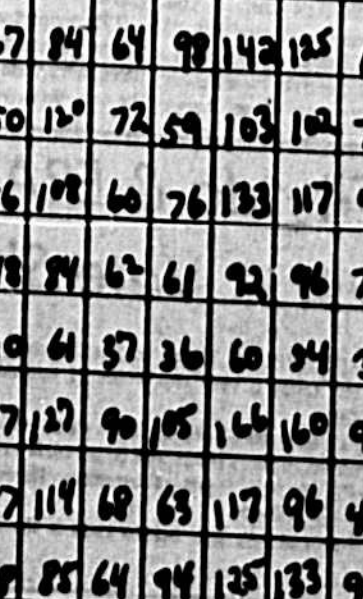 84 64 98 142 125
120 72 59 103 102
108 60 76 133 117
84 62 61 92 96
61 37 36 60
127 90 105 166 160
114 68 63 117 96
85 64 94 125 133